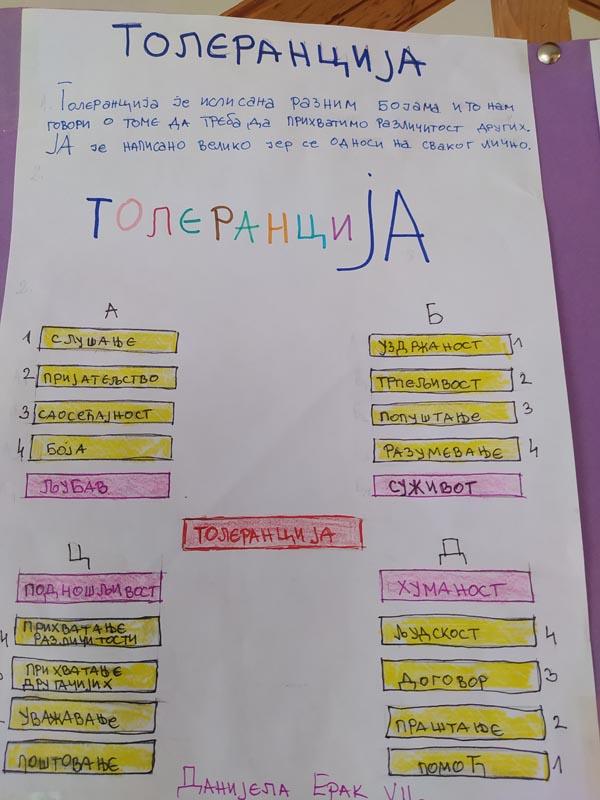 ТОЛЕРАНЦИЈА
Толеранција је исписана разним бојама и то нам
говори о томе да треба да прихватимо различитост других.
ЈА је написано велико јер се односи на сваког лично.
ТОЛЕРАНЦИЈА
А
1 СЛУШАЊЕ
2 ПРИЈАТЕЉСТВО
3 САОСЕЋАЈНОСТ
4 БОЈА
ЉУБАВ
Б
УЗДРЖАНОСТ 1
ТРПЕЉИВОСТ 2
ПОПУШТАЊЕ 3
РАЗУМЕВАЊЕ 4
СУЖИВОТ
ТОЛЕРАНЦИЈА
Ц
ПОДНОШЉИВОСТ
4 ПРИХВАТАЊЕ
РАЗЛИЧИТОСТИ
ПРИХВАТАЊЕ
ДРУГАЧИЈИХ
УВАЖАВАЊЕ
ПОШТОВАЊЕ
Д
ХУМАНОСТ
ЉУДСКОСТ 4
ДОГОВОР 3
ПРАШТАЊЕ 2
ПОМОЋ 1
Данијела Ерак VII